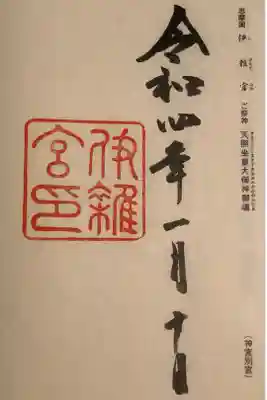 志摩国 伊雜宮 ご祭神 天照坐皇大御神御魂
(神宮別宮)
令和四年一月十日
伊雜
宮印